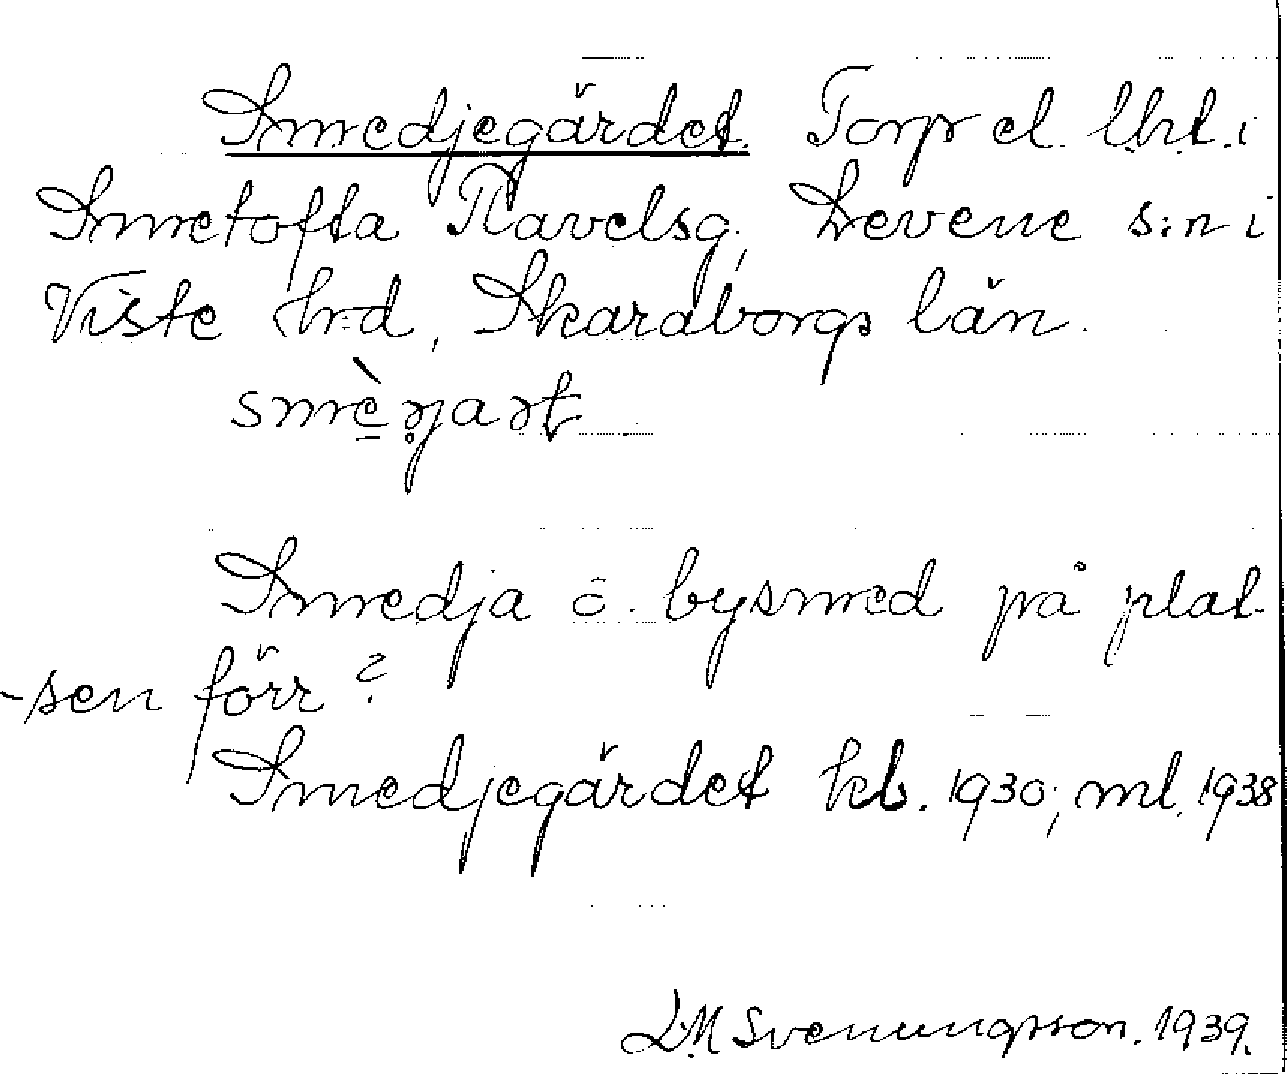 Smedjegärdet. Torp el. lht. i
Smetofta Ravelsg, Levene s:n i
Viste hrd, Skaraborgs län.
Smedja o. bysmed på plat-
-sen förr?
Smedjegärdet kb. 1930; ml. 1938
L.M Svenungsson. 1939.